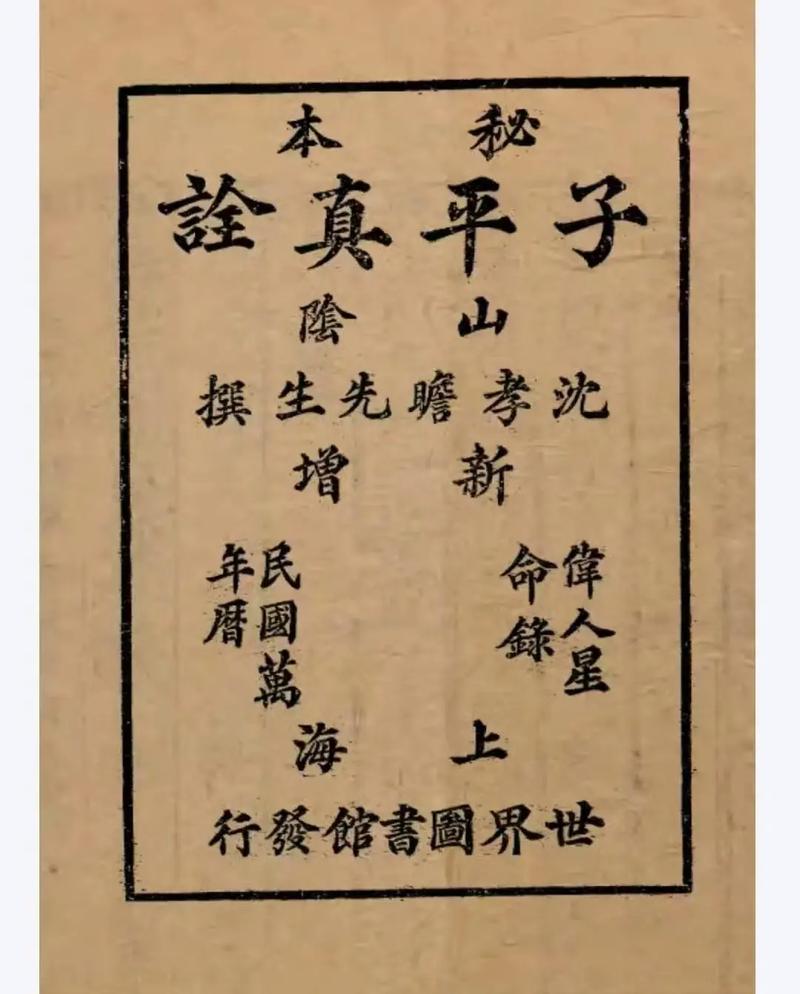 秘本
子平真詮
山陰
沈孝瞻先生撰
新增
偉人星命錄
民國萬年曆
上海
世界圖書館發行